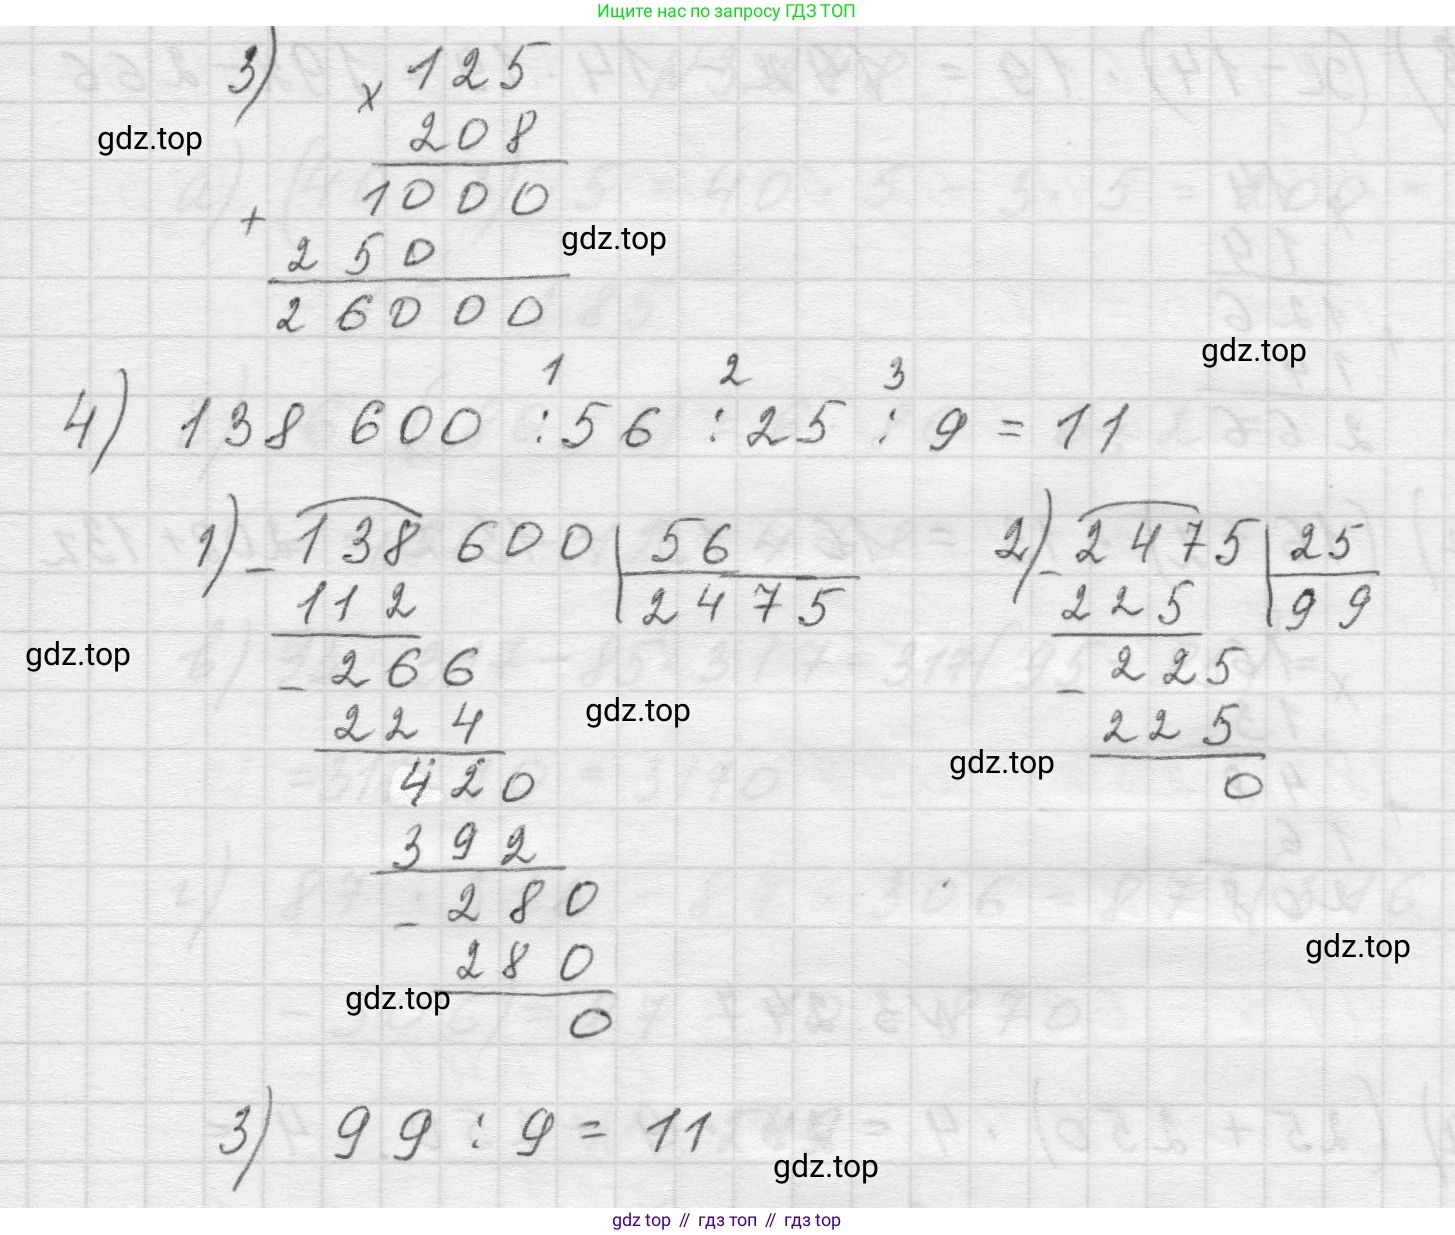 Ищите нас по запросу ГДЗ ТОП
3) × 125
208
gdz.top
+ 1000
250
gdz.top
26000
gdz.top
1 2 3
4) 138 600 : 56 : 25 : 9 = 11
1) - 138 600 | 56
112 | 2475
- 266
224
420
392
- 280
280
0
2) - 2475 | 25
225 | 99
- 225
225
0
gdz.top
gdz.top
gdz.top
gdz.top
gdz.top
3) 99 : 9 = 11
gdz.top
gdz top // гдз топ // гдз top